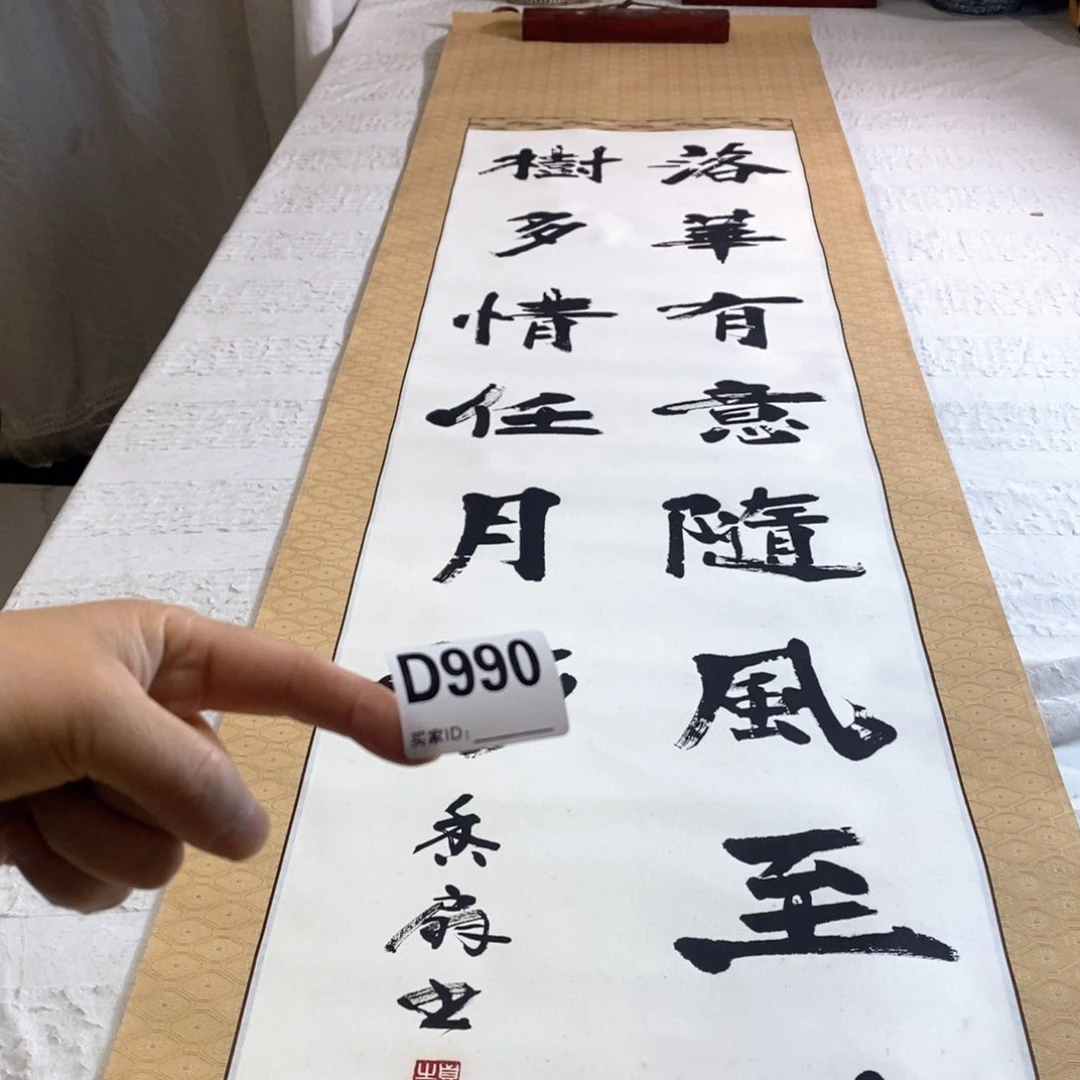 落華有意隨風至
樹多情任月
香扇书
D990
买家ID：